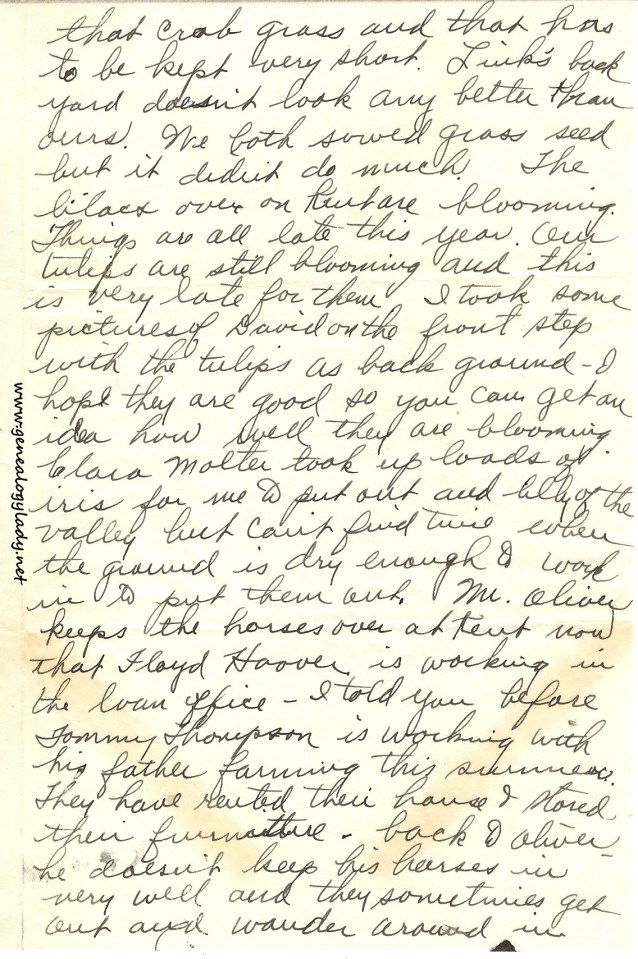 that crab grass and that has
to be kept very short. Link's back
yard doesn't look any better than
ours. We both sowed grass seed
but it didn't do much. The
lilacs over on Kent are blooming.
Things are all late this year. Our
tulips are still blooming and this
is very late for them I took some
pictures of David on the front step
with the tulips as back ground - I
hope they are good so you can get an
idea how well they are blooming
Clara Molter took up loads of
iris for me to put out and lily of the
valley but can't find time when
the ground is dry enough to work
in to put them out. Mr. Oliver
keeps the horses over at Kent now
that Floyd Hoover is working in
the loan office - I told you before
Tommy Thompson is working with
his father farming this summer.
They have rented their house & stored
their furniture - back to Oliver -
he doesn't keep his horses in
very well and they sometimes get
out and wander around in
www.genealogylady.net